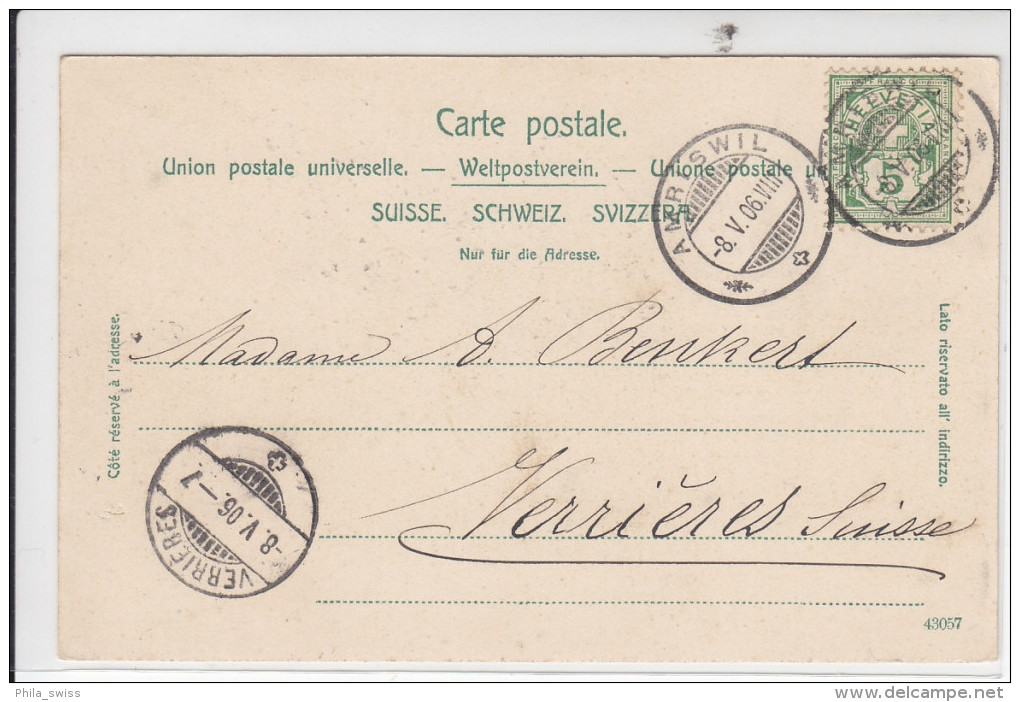 Carte postale.
Union postale universelle. — Weltpostverein. — Unione postale
SUISSE. SCHWEIZ. SVIZZERA
Nur für die Adresse.
FRANCO
HELVETIA
5
AMRISWIL
-8. V. 06. VIII
Madame A. Benkert
Verrières Suisse
Côté réservé à l'adresse.
Lato riservato all' indirizzo.
VERRIÈRES
-8. V. 06. — 7
43057
Phila_swiss
www.delcampe.net